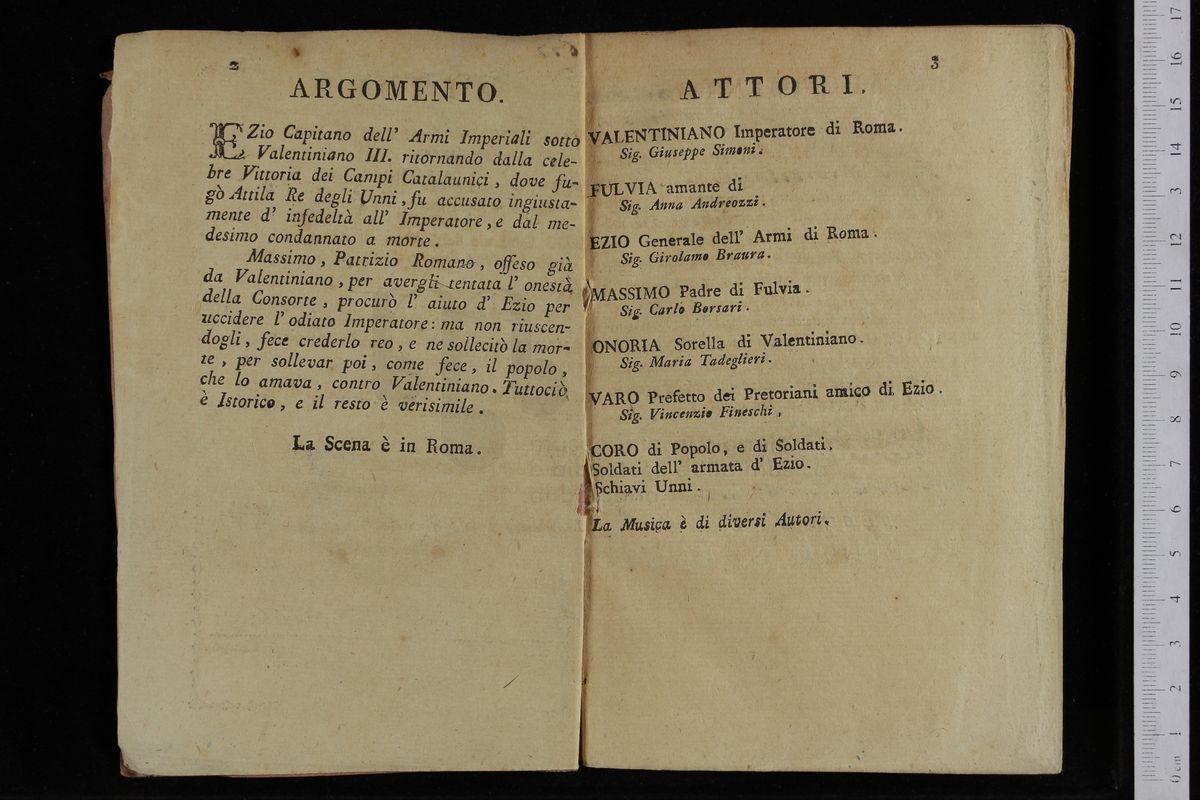 2
ARGOMENTO.
EZio Capitano dell' Armi Imperiali sotto
Valentiniano III. ritornando dalla cele-
bre Vittoria dei Campi Catalaunici, dove fu-
gò Attila Re degli Unni, fu accusato ingiusta-
mente d' infedeltà all' Imperatore, e dal me-
desimo condannato a morte.
Massimo, Patrizio Romano, offeso già
da Valentiniano, per avergli tentata l' onestà
della Consorte, procurò l' aiuto d' Ezio per
uccidere l' odiato Imperatore: ma non riuscen-
dogli, fece crederlo reo, e ne sollecitò la mor-
te, per sollevar poi, come fece, il popolo,
che lo amava, contro Valentiniano. Tuttociò
è Istorico, e il resto è verisimile.
La Scena è in Roma.
3
ATTORI.
VALENTINIANO Imperatore di Roma.
Sig. Giuseppe Simoni.
FULVIA amante di
Sig. Anna Andreozzi.
EZIO Generale dell' Armi di Roma.
Sig. Girolamo Braura.
MASSIMO Padre di Fulvia.
Sig. Carlo Borsari.
ONORIA Sorella di Valentiniano.
Sig. Maria Tadeglieri.
VARO Prefetto dei Pretoriani amico di Ezio.
Sig. Vincenzio Fineschi,
CORO di Popolo, e di Soldati.
Soldati dell' armata d' Ezio.
Schiavi Unni.
La Musica è di diversi Autori.
0 cm 1 2 3 4 5 6 7 8 9 10 11 12 13 14 15 16 17